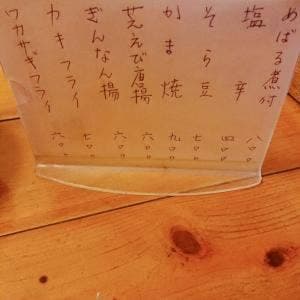 めばる煮付 八〇〇
塩辛 四〇〇
そら豆 七〇〇
かま焼 九〇〇
芝えび唐揚 六〇〇
ぎんなん揚 七〇〇
カキフライ 六〇〇
ワカサギフライ 六〇〇